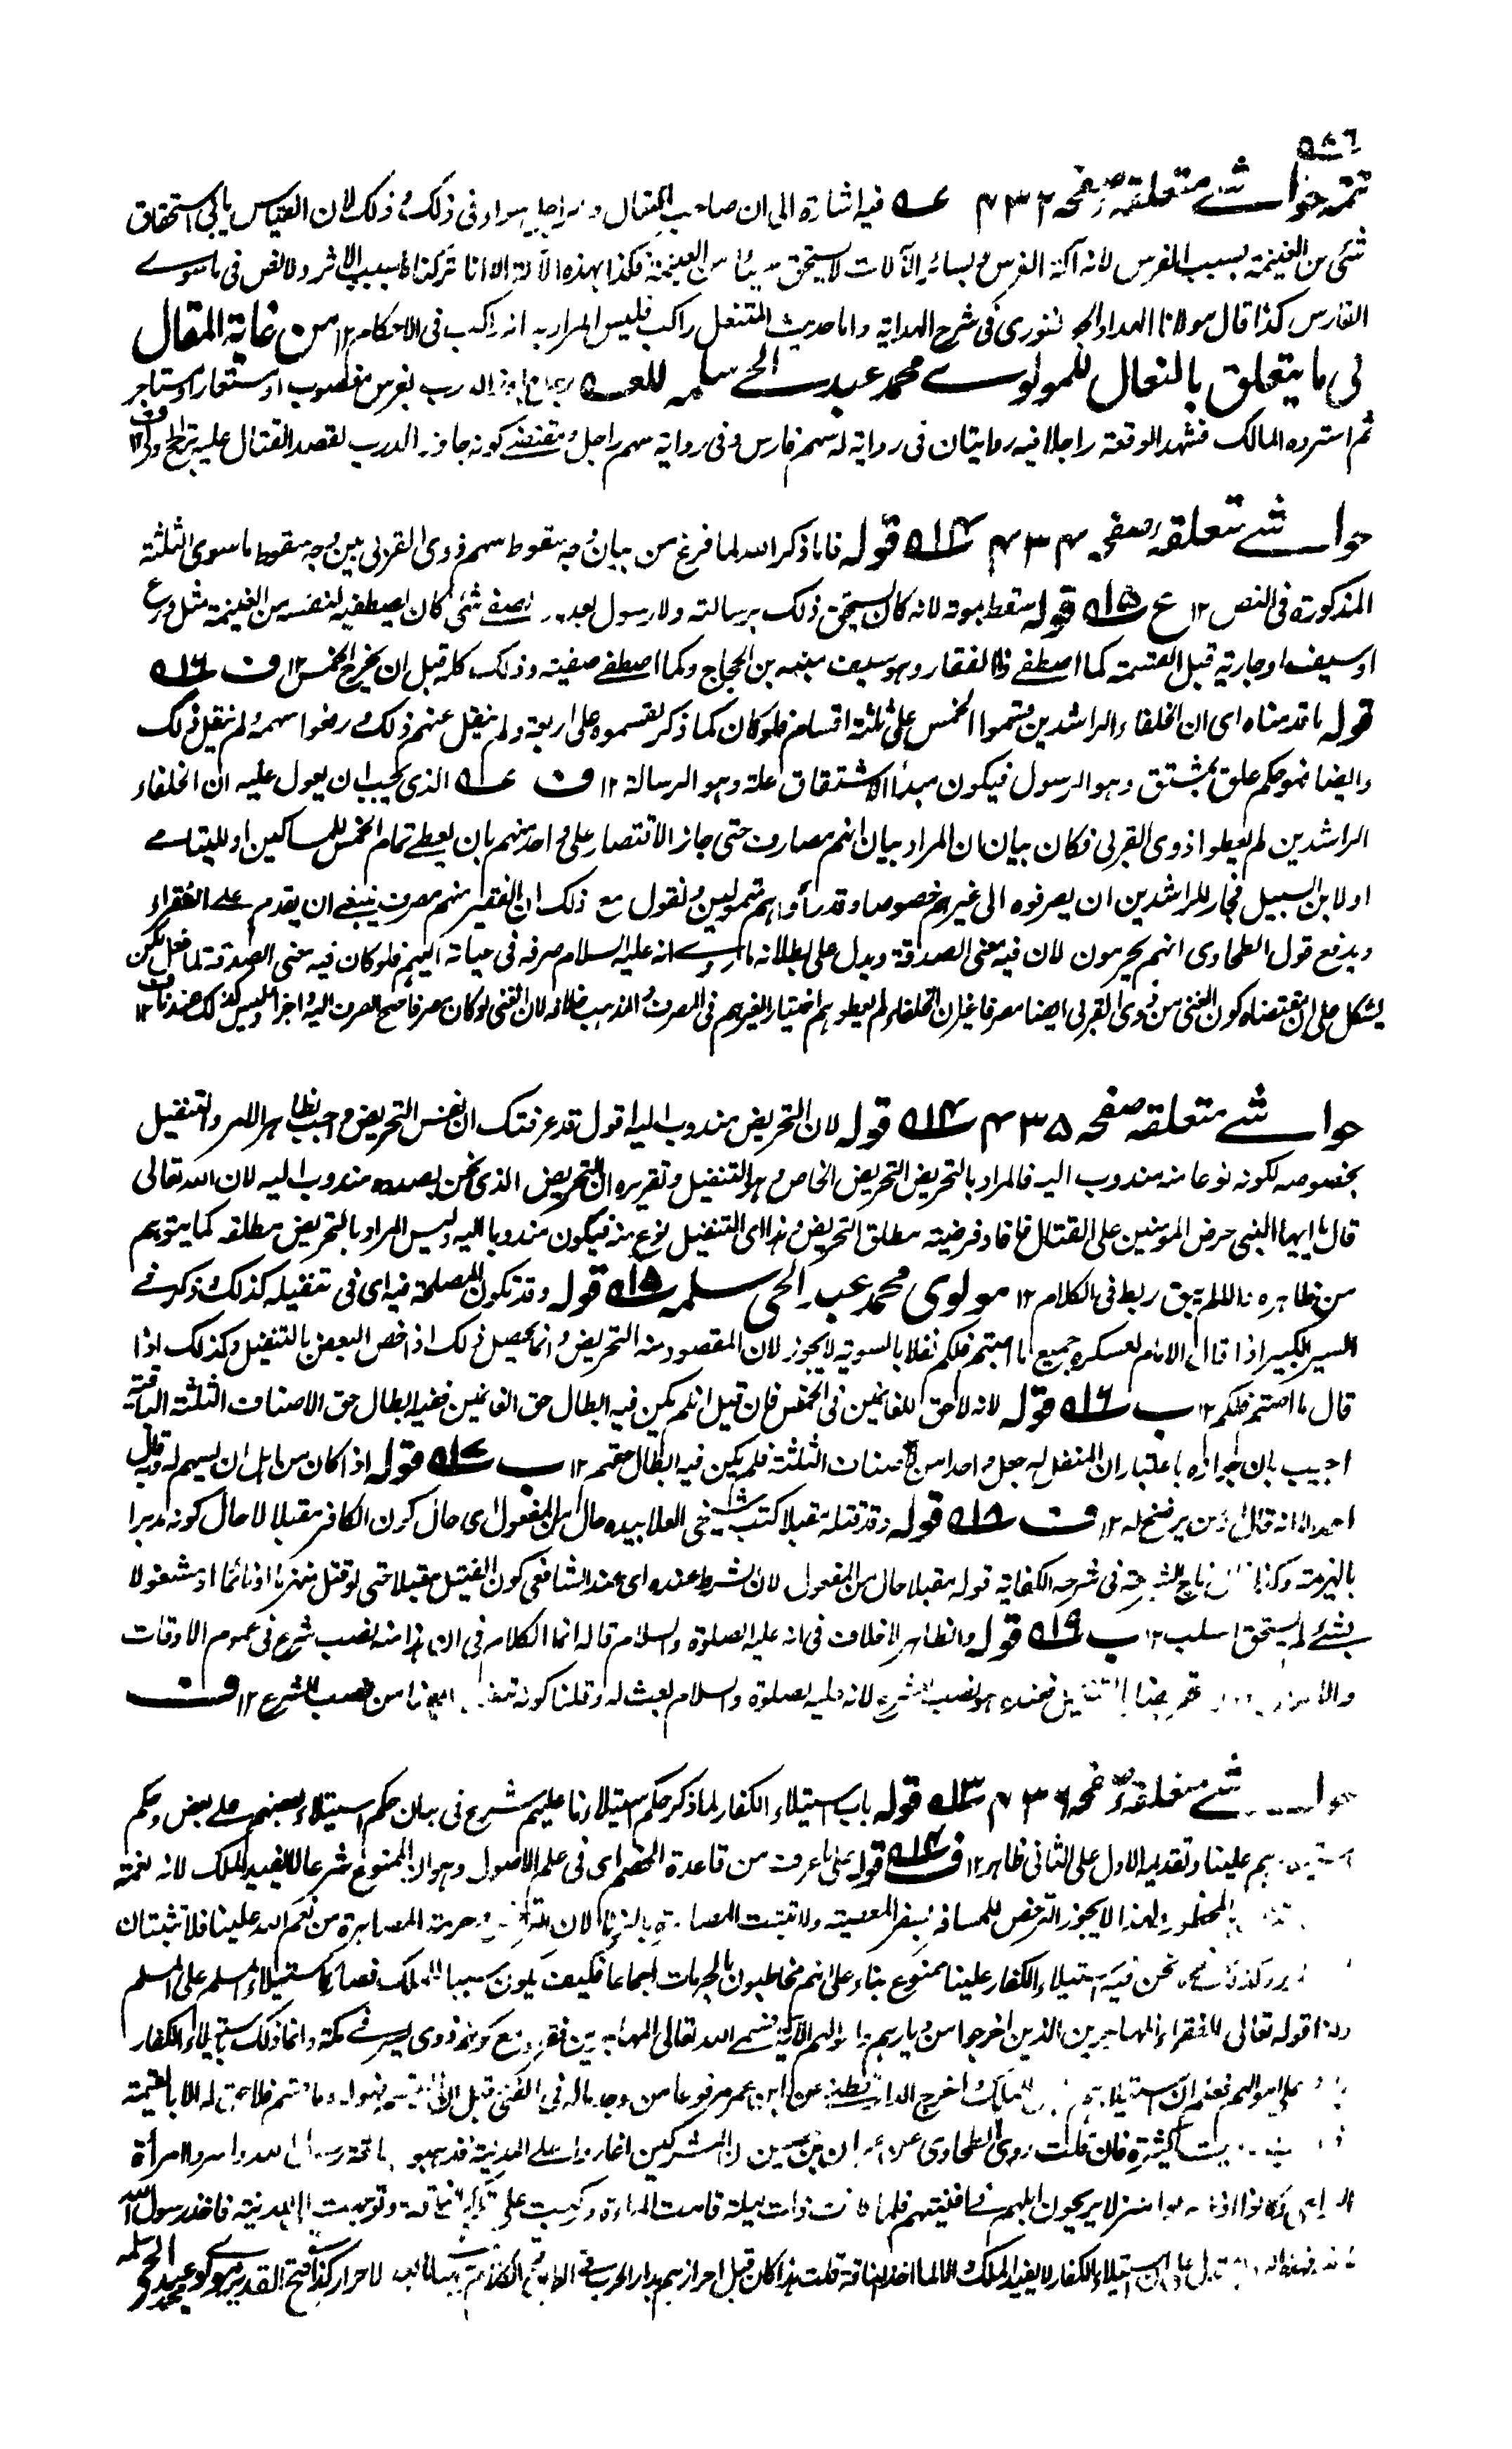 ٥٨٦
تتمہ حواشے متعلقہ صفحہ ۴۳۲ عہ فیہ اشارۃ الی ان صاحب البغال و راجل سواء فی ذلک و ذلک لان القیاس یابی استحقاق
شئی من الغنیمۃ بسبب الفرس لانہ آلۃ الفرس و بسائر الآلات لا یستحق شیئا من الغنیمۃ فکذا بہذہ الآلۃ الا انا ترکناہ بسبب الاثر ولا نص فی ما سوے
الفارس کذا قال مولانا الہداد الجونفوری فی شرح الہدایۃ واما حدیث المتنعل راکب فلیس المراد بہ انہ راکب فی الاحکام ۱۲ من غایۃ المقال
فی ما یتعلق بالنعال للمولوے محمد عبد الحے سلمہ للعہ الدرب بفرس مغصوب او مستعار او مستاجر
ثم استردہ المالک فشہد الوقعۃ راجلا فیہ روایتان فی روایۃ لہ سہم فارس و فی روایۃ سہم راجل و مقتضے کونہ جاوز الدرب لقصد القتال علیہ ترجح الاولی ۱۲ ف
حواشے متعلقہ صفحہ ۴۳۴ ۱۴ قولہ فاما ذکر اللہ لما فرغ من بیان وجہ سقوط سہم ذوی القربی بین وجہ سقوط ما سوی الثلثۃ
المذکورۃ فی النص ۱۲ ع ۱۵ قولہ سقط بموتہ لانہ کان یستحق ذلک برسالتہ ولا رسول بعدہ الصفے شئی کان یصطفیہ لنفسہ من الغنیمۃ مثل درع
او سیف او جاریۃ قبل القسمۃ کما اصطفے ذا الفقار وہو سیف منبہ بن الحجاج وکما اصطفے صفیۃ وذلک کلہ قبل ان یخرج الخمس ۱۲ ف ۱۶
قولہ ما قدمناہ ای ان الخلفاء الراشدین قسموا الخمس علی ثلثۃ اقسام فلو کان کما ذکر لقسموہ علی اربعۃ ولم ینقل عنہم ذلک و رفعوا سہمہ ولم ینقل ذلک
وایضا فہو حکم علق بمشتق وہو الرسول فیکون مبدأ الاشتقاق علۃ وہو الرسالۃ ۱۲ ف عہ الذی یجب ان یعول علیہ ان الخلفاء
الراشدین لم یعطوا ذوی القربی فکان بیان ان المراد بیان انہم مصارف حتی جاز الاقتصار علی واحد منہم بان یعطے تمام الخمس للمساکین او للیتامے
او لابن السبیل فجاز للراشدین ان یصرفوہ الی غیرہم خصوصا وقد رأوہم متمولین ونقول مع ذلک ان الفقیر منہم مصرف ینبغے ان یقدم علے الفقراء
ویدفع قول الطحاوی انہم یحرمون لان فیہ معنی الصدقۃ ویدل علی بطلانہ ما روے انہ علیہ السلام صرفہ فی حیاتہ الیہم فلو کان فیہ معنی الصدقۃ لما فعل لکن
یشکل علی ان مقتضاہ کون الغنی من ذوی القربی ایضا مصرفا غیر ان الخلفاء لم یعطوہم اختیارا لغیرہم فی المصرف والمذہب خلافہ لان الغنی لو کان مصرفا صح الصرف الیہ واجزأ ولیس کذلک عندنا ف ۱۲
حواشے متعلقہ صفحہ ۴۳۵ ۱۴ قولہ لان التحریض مندوب الیہ اقول قد عرفتک ان نفس التحریض واجب بظاہر الامر والتنفیل
بخصوصہ لکونہ نوعا منہ مندوب الیہ فالمراد بالتحریض التحریض الخاص وہو التنفیل وتقریرہ ان التحریض الذی نحن بصددہ مندوب الیہ لان اللہ تعالی
قال یا ایہا النبی حرض المومنین علی القتال فافاد فرضیتہ مطلق التحریض وہذا ای التنفیل نوع منہ فیکون مندوبا الیہ ولیس المراد بالتحریض مطلقہ کما یتوہم
من ظاہرہ ربط فی الکلام ۱۲ مولوی محمد عبد الحی سلمہ ۱۵ قولہ وقد تکون المصلحۃ فیہ ای فی تنفیلہ کذلک وذکر فے
السیر الکبیر اذا قال الامام لعسکرہ جمیع ما اصبتم فلکم نفلا بالسویۃ لا یجوز لان المقصود منہ التحریض وانما یحصل ذلک اذا خص البعض بالتنفیل وکذلک اذا
قال ما اصبتم فلکم ۱۲ ب ۱۶ قولہ لانہ لا حق للغانمین فی الخمس فان قیل ان لم یکن فیہ ابطال حق الغانمین ففیہ ابطال حق الاصناف الثلثۃ الباقیۃ
اجیب بان جوازہ باعتبار ان المنفل لہ جعل واحدا من الاصناف الثلثۃ فلم یکن فیہ ابطال حقہم ۱۲ ب ۱۷ قولہ اذا کان من اہل ان یسہم لہ وبہ قال
احمد الا انہ قال من یرضخ لہ ۱۲ ف ۱۸ قولہ وقد قتلہ مقبلا کتب شیخی العلا بیدہ حال من المفعول ای حال کون الکافر مقبلا لا حال کونہ مدبرا
بالہزیمۃ وکذا تاج الشریعۃ فی شرحہ الکفایۃ قولہ مقبلا حال من المفعول لان الشرط عندہ ای عند الشافعی کون القتیل مقبلا حتی لو قتل منہزما او نائما او مشغولا
بشئے لم یستحق السلب ۱۲ ب ۱۹ قولہ والظاہر لا خلاف فی انہ علیہ الصلوۃ والسلام قالہ انما الکلام فی ان ہذا منہ نصب شرع فی عموم الاوقات
والاحوال تحریضا بالتنفیل فعندہ ہو نصب الشرع لانہ علیہ الصلوۃ والسلام بعث لہ وقلنا کونہ من نصب الشرع ۱۲ ف
حواشے متعلقہ صفحہ ۴۳۶ ۱۳ قولہ باب استیلاء الکفار لما ذکر حکم استیلاءنا علیہم شرع فی بیان حکم استیلاء بعضہم علے بعض وحکم
استیلائہم علینا وتقدیم الاول علی الثانی ظاہر ۱۲ ف ۱۴ قولہ علی ما عرف من قاعدۃ الخصم ای فی علم الاصول وہو ان الممنوع شرعا لا یفید الملک لانہ نعمۃ
بالمحظور ولہذا لا یجوز الترخص للمسافر بسفر المعصیۃ ولا تثبت المصاہرۃ بالزنا لان وحرمۃ المصاہرۃ من نعم اللہ علینا فلا تثبتان
نحن فیہ استیلاء الکفار علینا ممنوع بناء علی انہم مخاطبون بالحرمات اجماعا فکیف یکون سببا للملک فصار کاستیلاء المسلم علی المسلم
ولنا قولہ تعالی للفقراء المہاجرین الذین اخرجوا من دیارہم واموالہم الآیۃ سمے اللہ تعالی المہاجرین فقراء مع کونہم ذوی یسر فے مکۃ وانما ذلک باستیلاء الکفار
علی اموالہم فعلم ان استیلاءہم للملک واخرج الدارقطنے عن ابن عمر مرفوعا من وجد مالہ فی الفئی قبل ان یقسم فہو لہ وما قسم فلا حق لہ الا بالقیمۃ
کثیرۃ فان قلت روی الطحاوی عن عمران بن حصین ان المشرکین اغاروا علے المدینۃ فذہبوا بناقۃ رسول اللہ واسروا امرأۃ
وکانوا اذا نزلوا منزلا یریحون ابلہم فے افنیتہم فلما کانت ذات لیلۃ قامت المراۃ ورکبت علی ناقۃ وتوجہت الی المدینۃ فاخذ رسول اللہ
استیلاء الکفار لا یفید الملک والا لما اخذ الناقۃ قلت ہذا کان قبل احرازہم بدار الحرب الاحراز کذا فی فتح القدیر ۱۲ مولوے محمد عبد الحی سلمہ